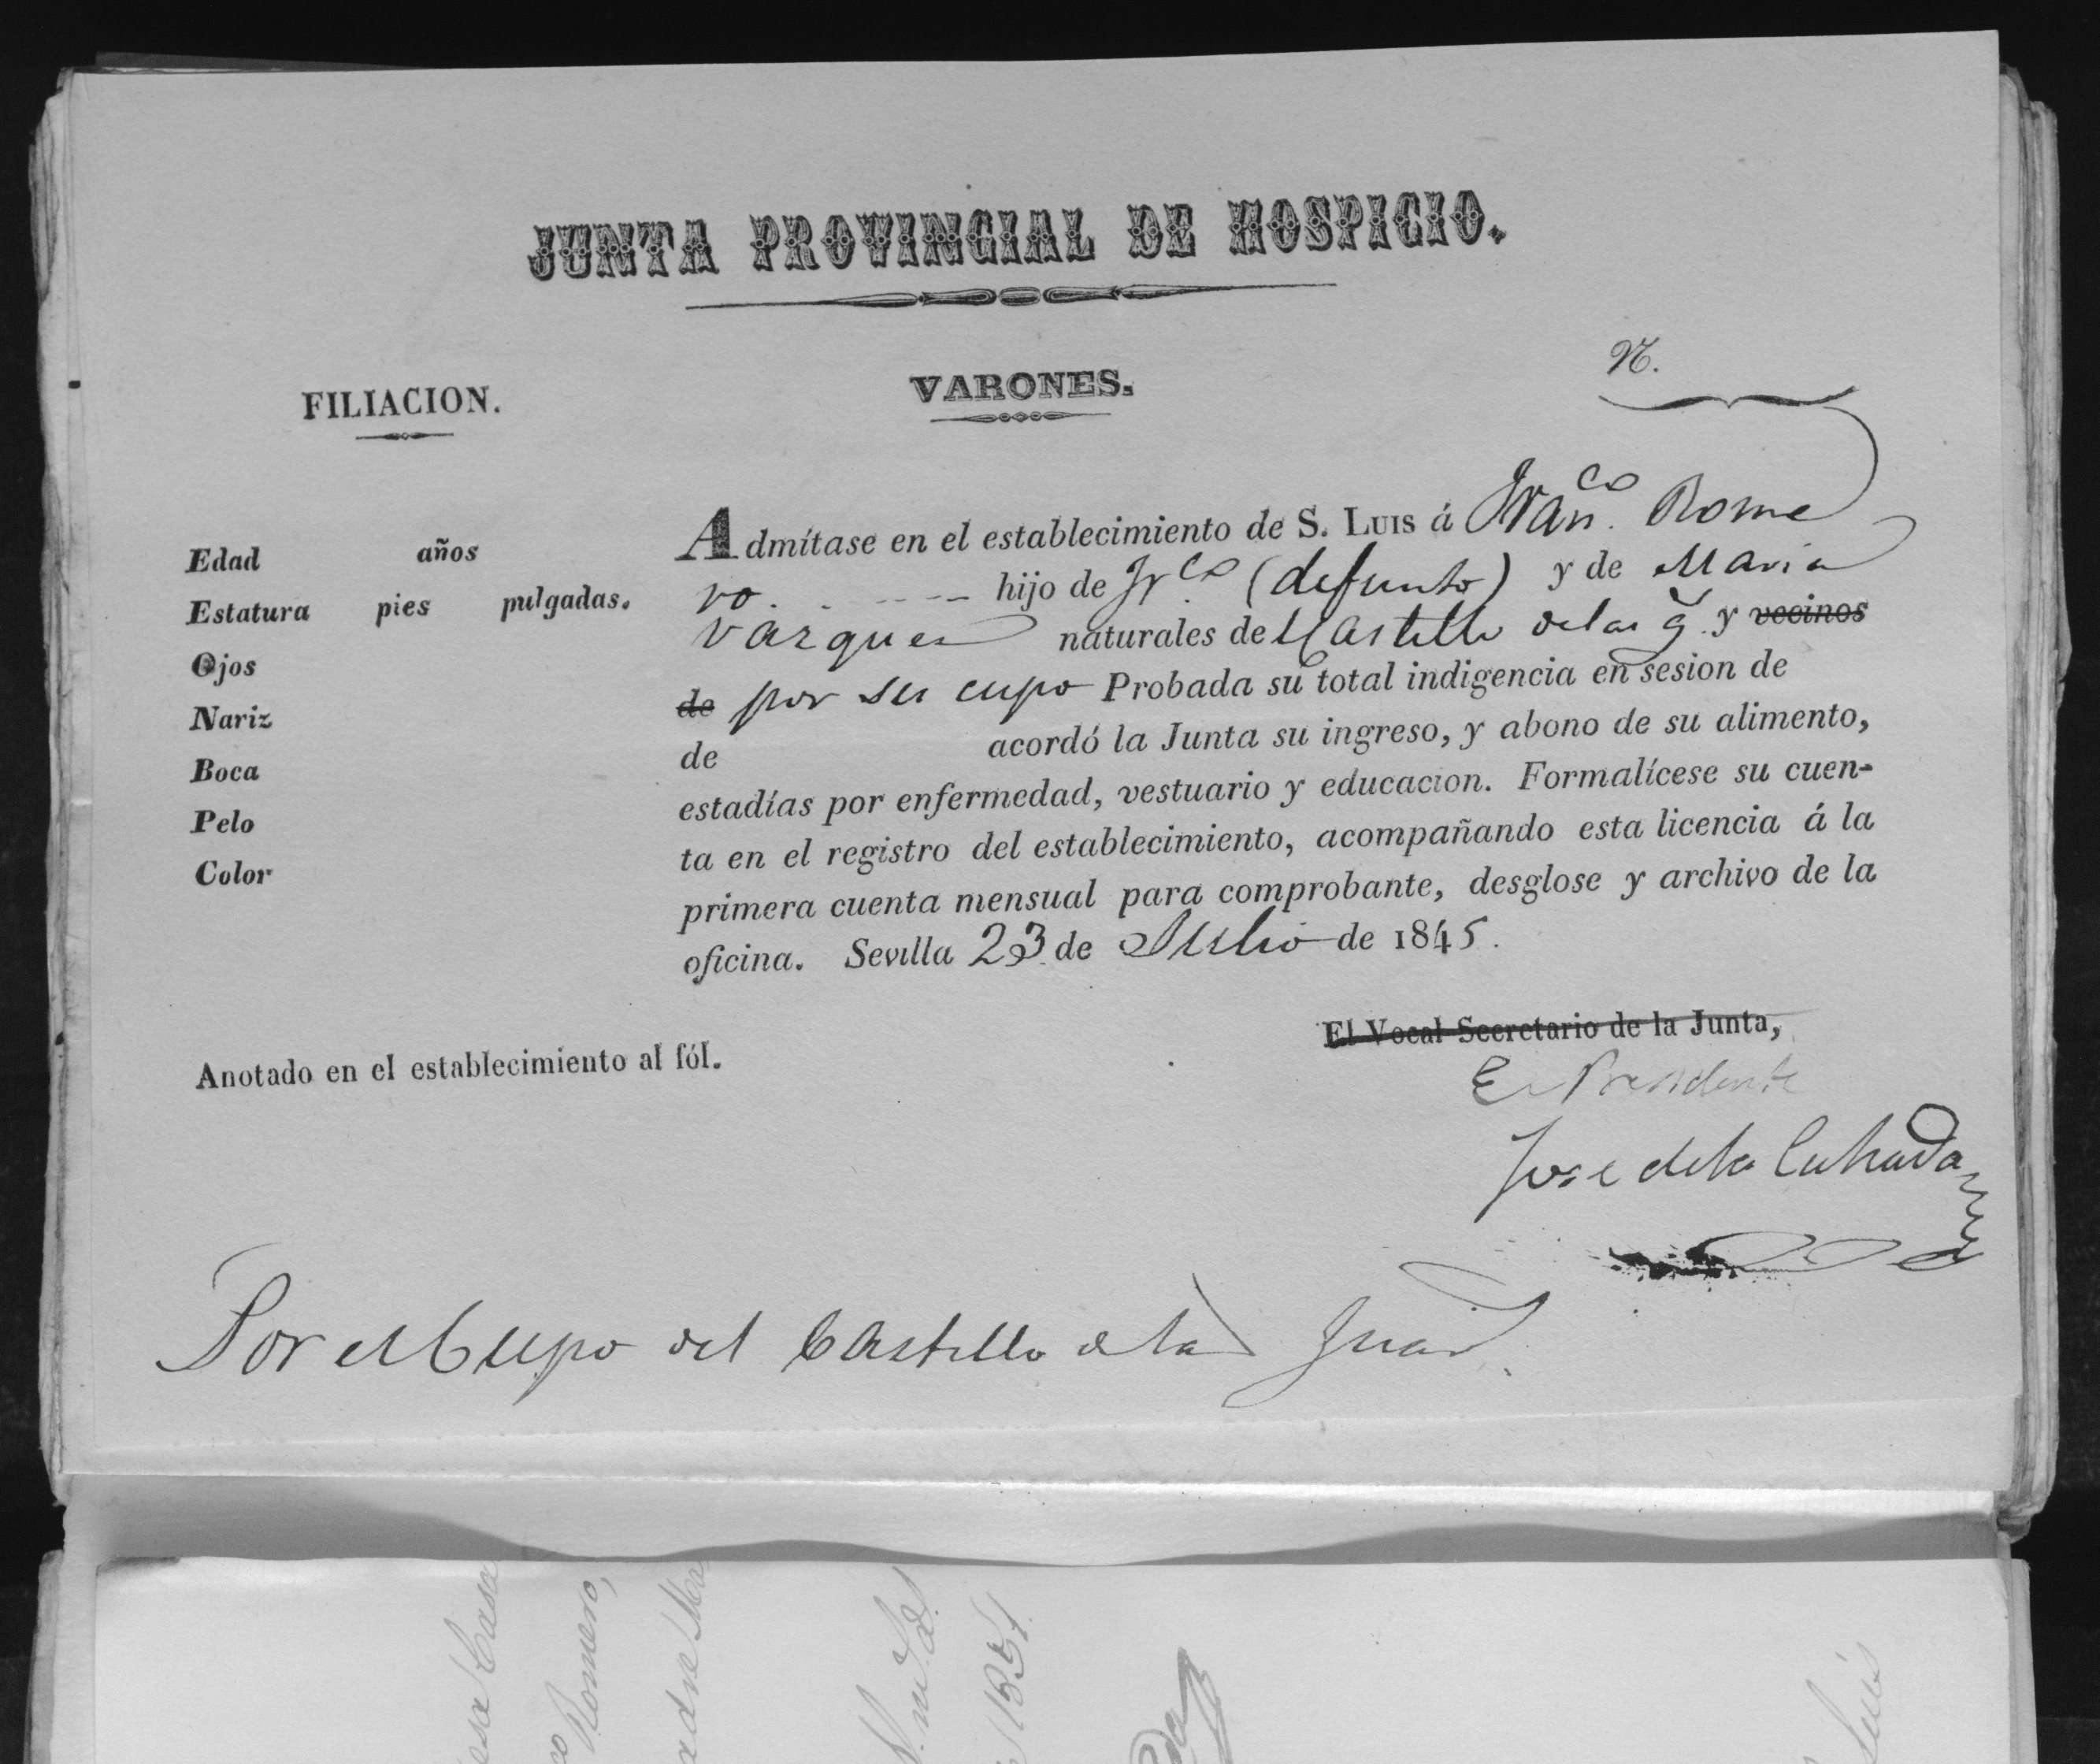 JUNTA PROVINCIAL DE HOSPICIO.
N.
FILIACION.
VARONES.
Edad años
Estatura pies pulgadas.
Ojos
Nariz
Boca
Pelo
Color
Admítase en el establecimiento de S. Luis á Fran.co Rome
ro. hijo de Fr.co (defunto) y de Maria
Vazquez naturales de Castillo de las g. y vecinos
de por su cupo Probada su total indigencia en sesion de
de acordó la Junta su ingreso, y abono de su alimento,
estadías por enfermedad, vestuario y educacion. Formalícese su cuen-
ta en el registro del establecimiento, acompañando esta licencia á la
primera cuenta mensual para comprobante, desglose y archivo de la
oficina. Sevilla 23 de Julio de 1845.
El Vocal Secretario de la Junta,
El Presidente
Anotado en el establecimiento al fól.
Jose de la
Por el Cupo del Castillo de las
esa Casa
co Romero,
adre
1851.
Luis